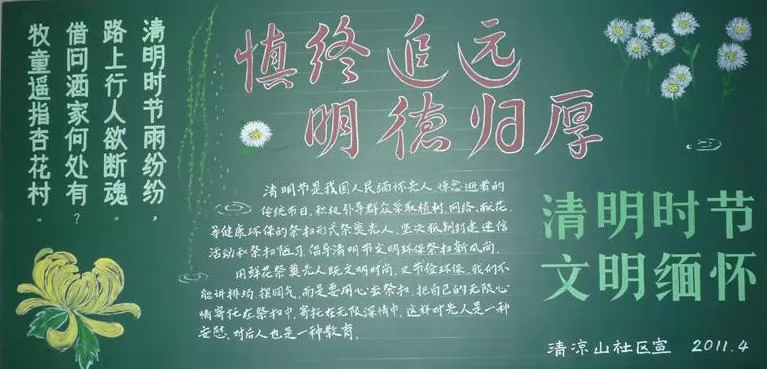 清明时节雨纷纷，
路上行人欲断魂。
借问酒家何处有？
牧童遥指杏花村。
慎终追元
明德归厚
清明节是我国人民缅怀先人、悼念逝者的
传统节日，积极引导群众采取植树、网络、献花
等健康环保的祭扫形式祭奠先人，坚决抵制封建迷信
活动和祭扫陋习，倡导清明节文明环保祭扫新风尚。
用鲜花祭奠先人既文明时尚，又节俭环保。我们不
能讲排场，摆阔气，而是要用心去祭扫，把自己的无限心
情寄托在祭扫中，寄托在无限深情中，这样对先人是一种
安慰，对后人也是一种教育。
清明时节
文明缅怀
清凉山社区宣 2011.4